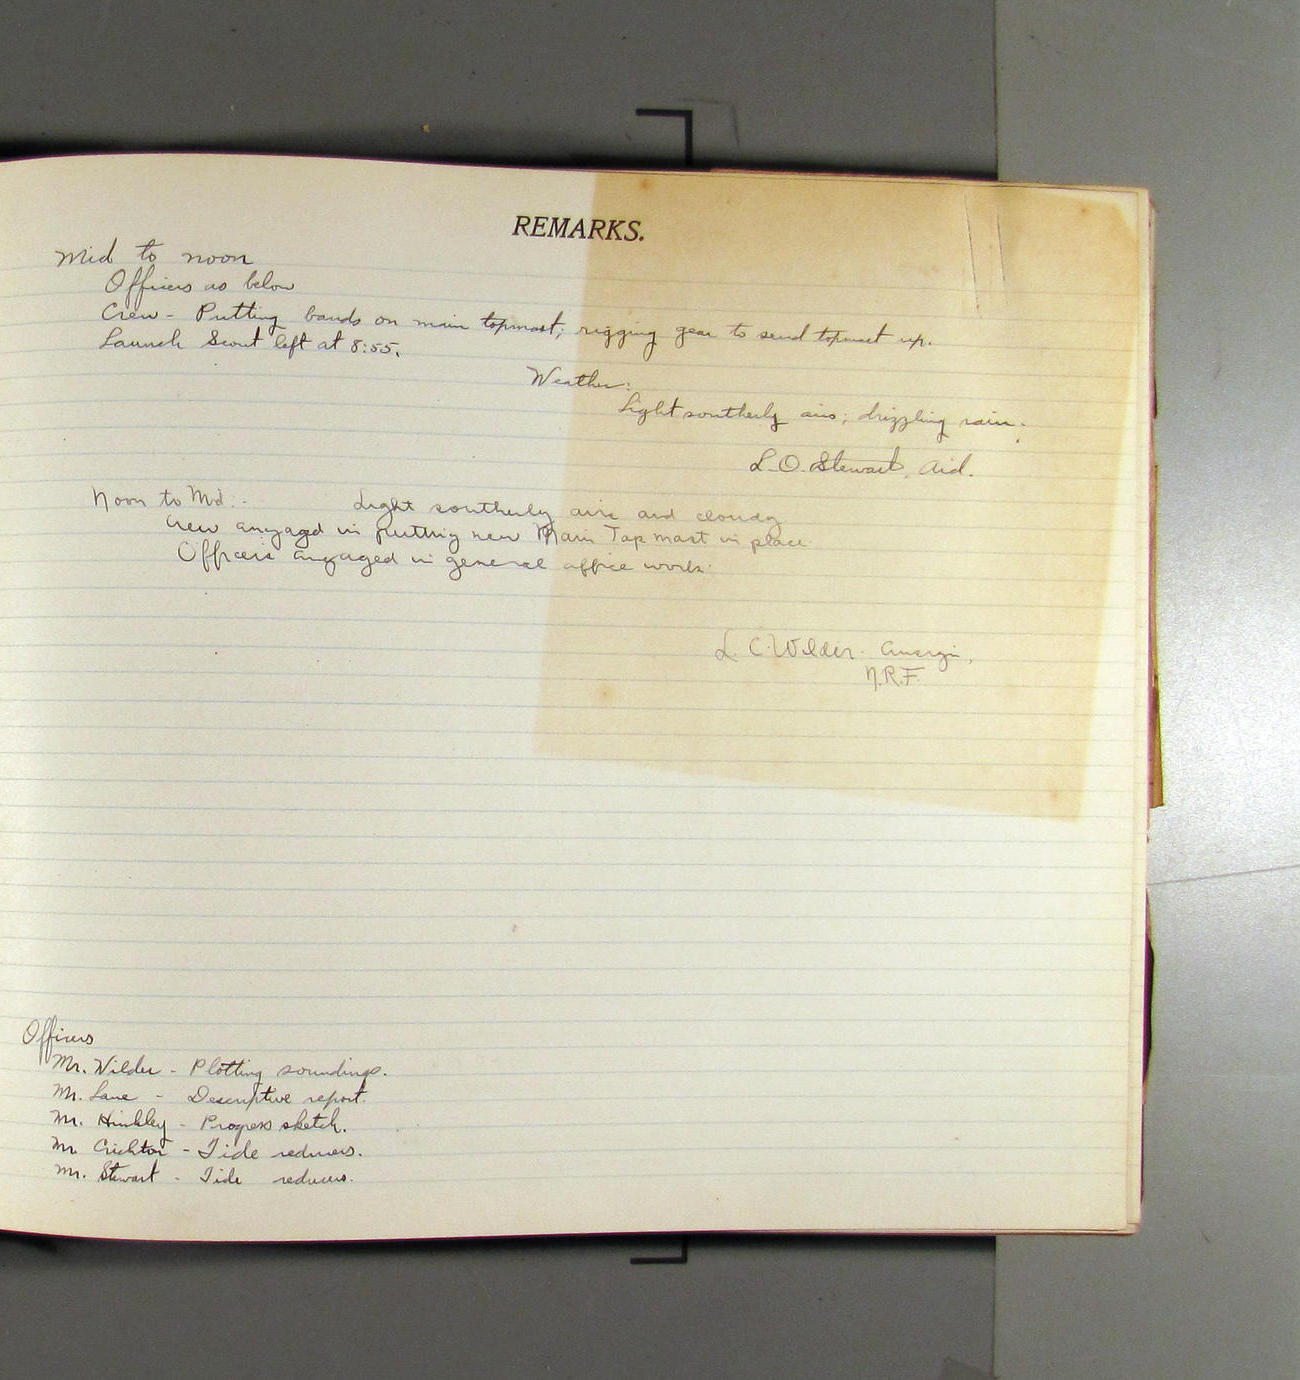 REMARKS.
Mid to noon
Officers as below
Crew - Putting bands on main topmast; rigging gear to send topmast up.
Launch Scout left at 8:55.
Weather:
Light southerly airs; drizzling rain.
L.O. Stewart, Aid.
Noon to Mid:- Light southerly airs and cloudy
Crew engaged in putting new Main Top mast in place.
Officers engaged in general office work.
L. C. Wilder.
N.R.F.
Officers
Mr. Wilder - Plotting soundings.
Mr. Lane - Descriptive report.
Mr. Hinkley - Progress sketch.
Mr. Crichton - Tide reducers.
Mr. Stewart - Tide reducers.